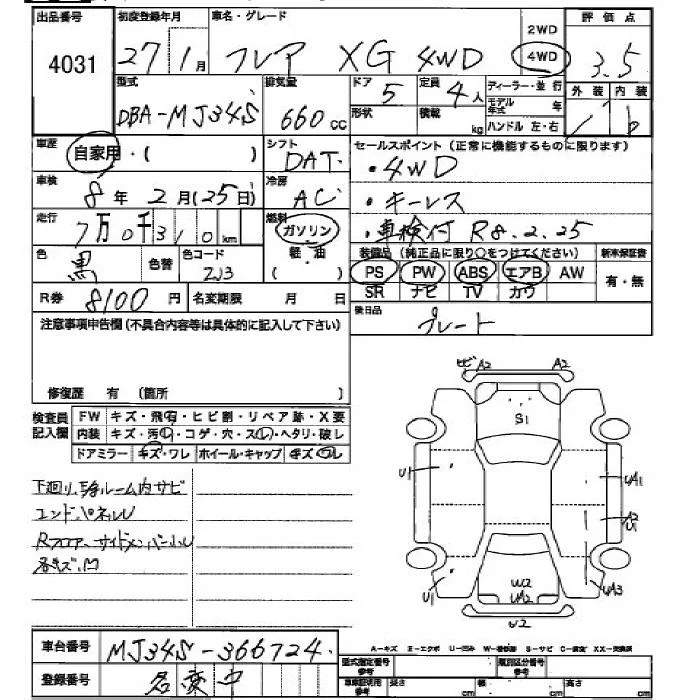 出品番号 初度登録年月 車名・グレード 2WD 評価点
4031 27 1月 フレア XG 4WD 4WD 3.5
型式 排気量 ドア 定員 ディーラー・並行 外装 内装
DBA-MJ34S 660cc 5 4人 モデル年式 年 b
形状 積載 kg ハンドル 左・右
車歴 自家用・( ) シフト DAT セールスポイント(正常に機能するものに限ります)
・4WD
車検 8年2月(25日) 冷房 AC ・キーレス
走行 7万0千310km 燃料 ガソリン ・車検付 R8.2.25
軽油 装備品(純正品に限り○をつけてください) 新車保証書
色 黒 色替 色コード ZJ3 PS PW ABS エアB AW 有・無
SR ナビ TV カワ
R券 8100円 名変期限 月 日 後日品
プレート
注意事項申告欄(不具合内容等は具体的に記入して下さい)
修復歴 有 (箇所 )
検査員記入欄 FW キズ・飛石・ヒビ割・リペア跡・X要
内装 キズ・汚れ・コゲ・穴・スレ・ヘタリ・破レ
ドアミラー キズ・ワレ ホイール・キャップ キズ・ワレ
サビ A2 A2
S1
U1 UA1
A2
U1
下廻り、Eルーム内サビ
エンドパネルU
Rフロア、サイドメンバー小U
各キズ、凹
U1 W2 UA2 UA3
U2
車台番号 MJ34S-366724
登録番号 名変中
A-キズ E-エクボ U-凹み W-補修跡 S-サビ C-腐食 XX-交換済
型式指定番号 参考 類別区分番号 参考
車庫証明用 参考 長さ cm 幅 cm 高さ cm